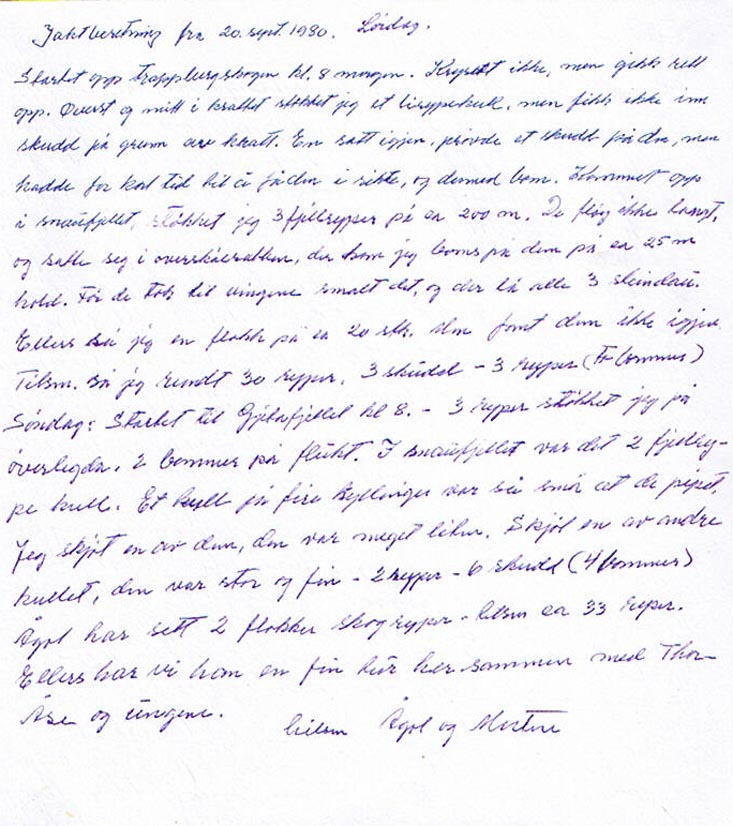 Jaktberetning fra 20. sept. 1980. Lørdag.
Startet opp kl. 8 morgen. Krysset ikke, men gikk rett
opp. Øverst og midt i krattet støkket jeg et lirypekull, men fikk ikke inn
skudd på grunn av kratt. En satt igjen, prøvde et skudd på den, men
hadde for kort tid til å få den i sikte, og dermed bom. Kommet opp
i snaufjellet, støkket jeg 3 fjellryper på ca 200 m. De fløg ikke langt,
og satte seg i, der kom jeg på dem på ca 25 m
hold. Før de tok til vingene smalt det, og der lå alle 3 steindau.
Ellers så jeg en flokk på ca 20 stk. den fant dem ikke igjen.
Tilsm. så jeg rundt 30 ryper. 3 skudd - 3 ryper (To bommer)
Søndag: Startet til Gjelafjellet kl 8. - 3 ryper støkket jeg på
2 bommer på flukt. I snaufjellet var det 2 fjellry-
pe kull. Et kull på fire kyllinger var så små at de pipet.
Jeg skjøt en av dem, den var meget liten. Skjøt en av andre
kullet, den var stor og fin - 2 ryper - 6 skudd (4 bommer)
Ågot har sett 2 flokker skogryper - tilsm ca 33 ryper.
Ellers har vi ham en fin tur her sammen med Thor
Åse og ungene.
hilsen Ågot og